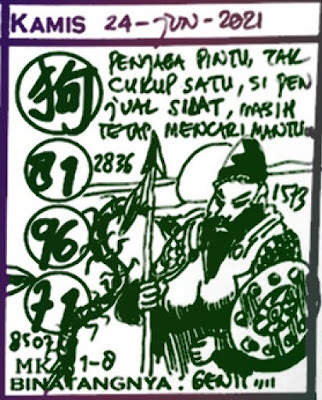 KAMIS 24-JUN-2021
狗 PENJAGA PINTU, TAK
CUKUP SATU, SI PEN
JUAL SILAT, MASIH
TETAP MENCARI MANTU
81 2836
1513
96
71
8507
MK 1-8
BINATANGNYA : GENIT ,,,,